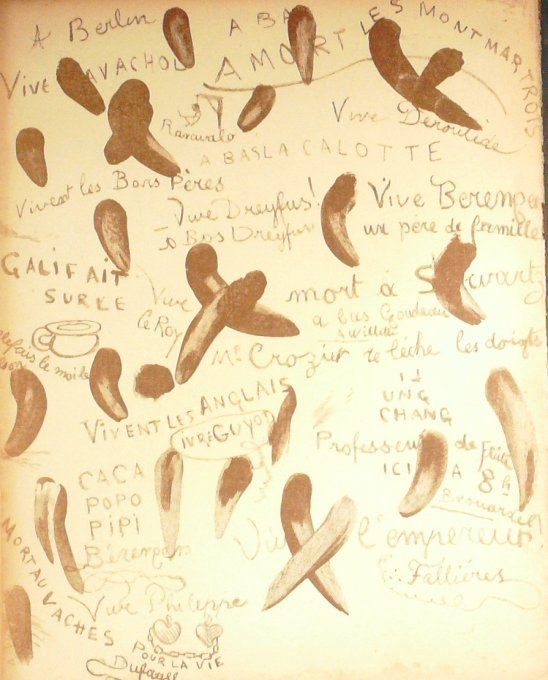 A Berlin
A BA
A MORT LES MONTMARTROIS
VIVE RAVACHOL
Vive Déroulède
Ranavalo
A BAS LA CALOTTE
Vivent les Bons Pères
Vive Dreyfus!
à Bas Dreyfus
Vive Berenger
un père de framille
GALIFAIT
SURLE
Vive
le Roy
mort à Schwartz
a bas Goudeau
A Willette
Mr Crozier se lèche les doigts
LI
UNG
CHANG
VIVENT LES ANGLAIS
YVES GUYOT
Professeur de Flûte
ICI A 8h
CACA
POPO
PIPI
Bérenger
Vive l'empereur
Fallières
MORT AU VACHES
Vive Philippe
POUR LA VIE
Dufayel